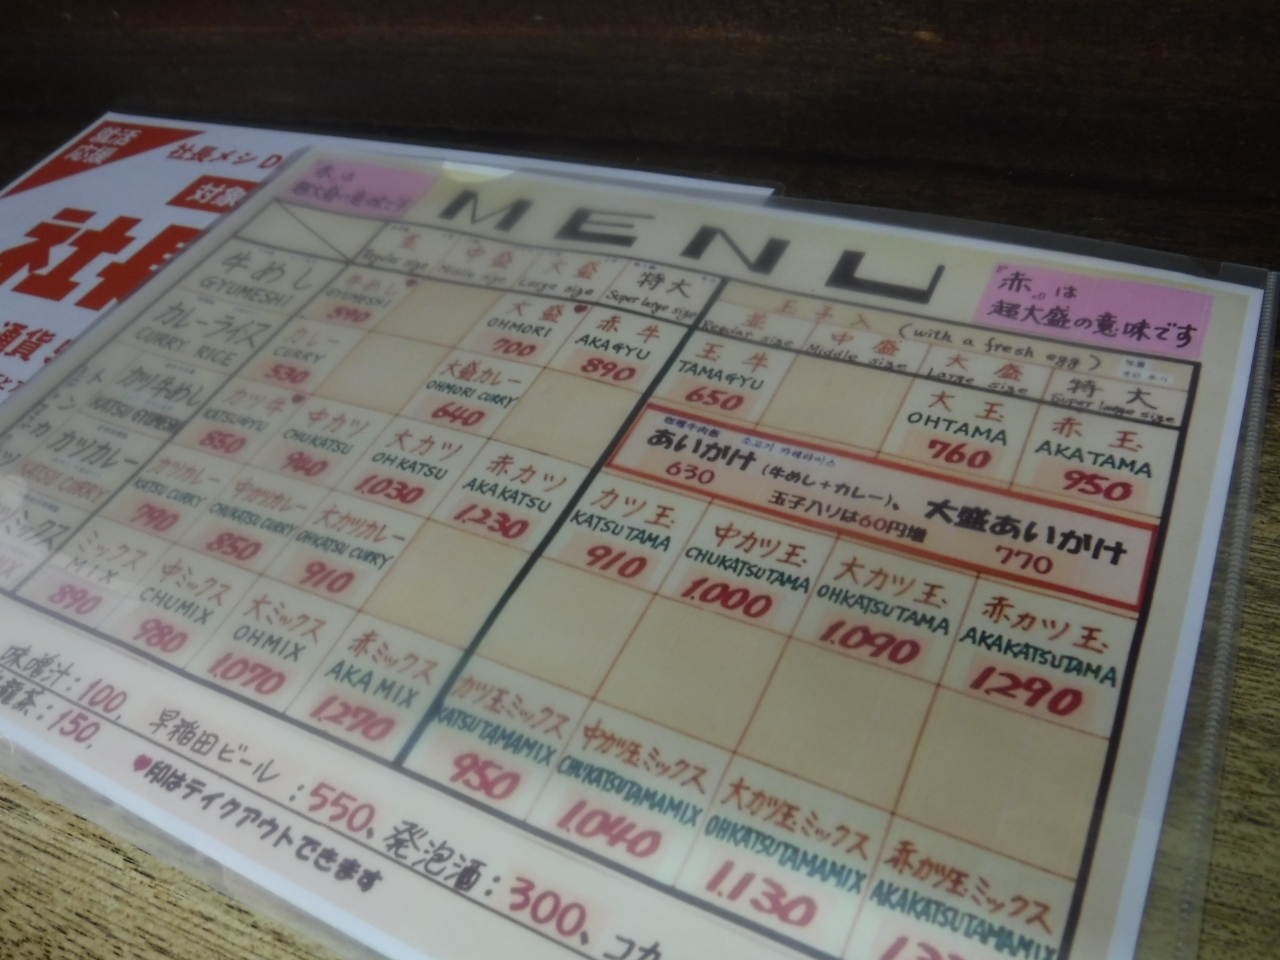 就活
応援
社長メシ D
対象
社長
通貨
赤は
超大盛の意味です
MENU
『赤』は
超大盛の意味です
並 中盛 大盛 特大
Regular size Middle size Large size Super large size
玉子入 (with a fresh egg)
並 中盛 大盛 特大
Regular size Middle size Large size Super large size
牛めし
GYUMESHI
牛めし♥
GYUMESHI
590
大盛♥
OHMORI
700
赤牛
AKAGYU
890
玉牛
TAMAGYU
650
大玉
OHTAMA
760
赤玉
AKATAMA
950
カレーライス
CURRY RICE
カレー
CURRY
530
大盛カレー
OHMORI CURRY
640
あいかけ(牛めし+カレー)、大盛あいかけ
630 玉子入りは60円増 770
カツ牛めし
KATSU GYUMESHI
カツ牛♥
KATSUGYU
850
中カツ
CHUKATSU
940
大カツ
OHKATSU
1.030
赤カツ
AKAKATSU
1.230
カツ玉
KATSUTAMA
910
中カツ玉
CHUKATSUTAMA
1.000
大カツ玉
OHKATSUTAMA
1.090
赤カツ玉
AKAKATSUTAMA
1.290
カツカレー
KATSU CURRY
カツカレー
KATSU CURRY
790
中カツカレー
CHUKATSU CURRY
850
大カツカレー
OHKATSU CURRY
910
ミックス
ミックス
MIX
890
中ミックス
CHUMIX
980
大ミックス
OHMIX
1.070
赤ミックス
AKAMIX
1.270
カツ玉ミックス
KATSUTAMAMIX
950
中カツ玉ミックス
CHUKATSUTAMAMIX
1.040
大カツ玉ミックス
OHKATSUTAMAMIX
1.130
赤カツ玉ミックス
AKAKATSUTAMAMIX
味噌汁:100、早稲田ビール:550、発泡酒:300、コカ
龍茶:150、
♥印はテイクアウトできます